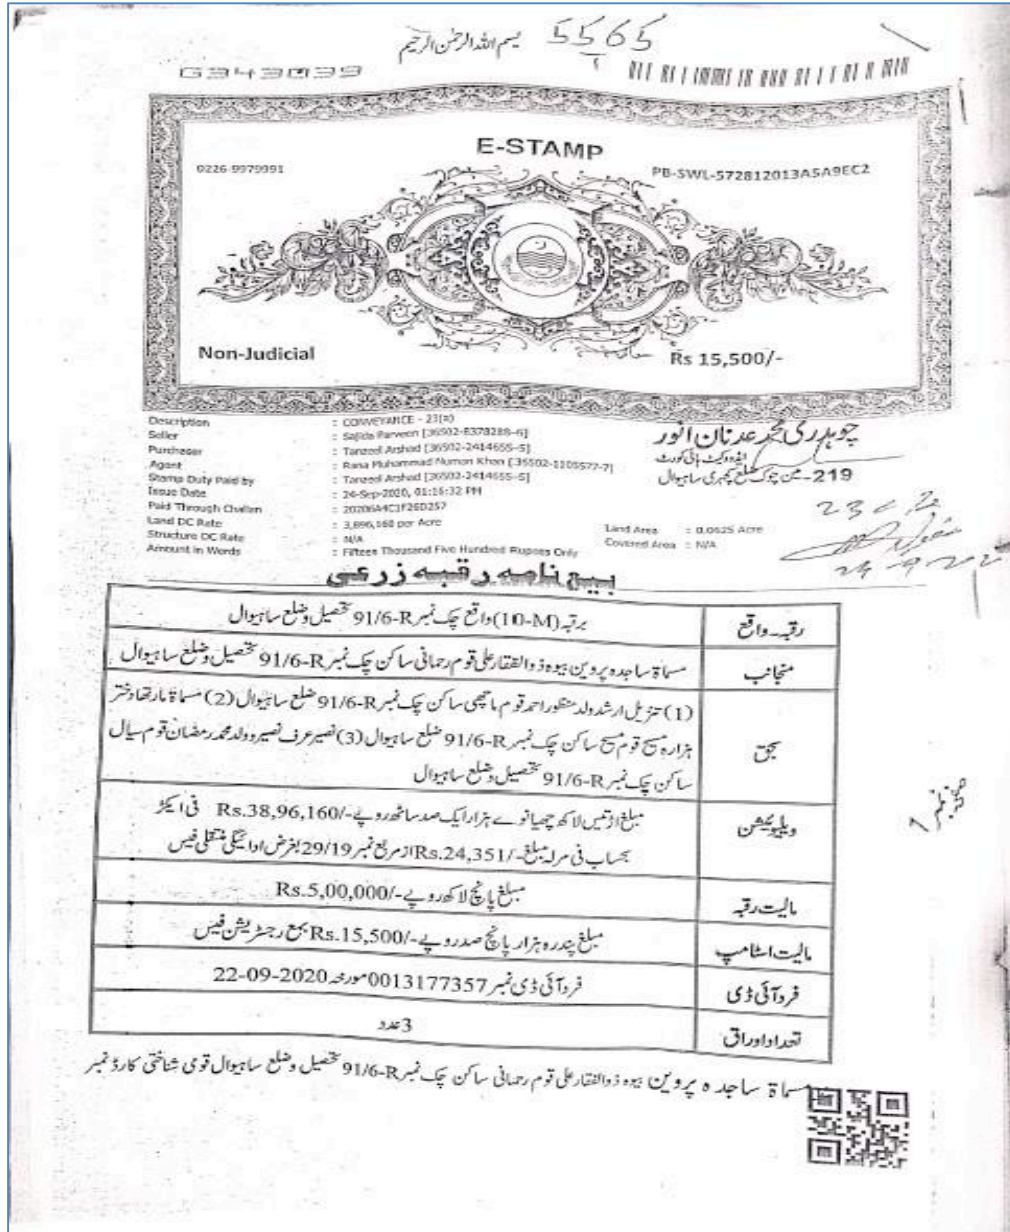 5565 بسم اللہ الرحمٰن الرحیم
G343039
E-STAMP
0226-9979991
PB-SWL-572812013A5A9EC2
Non-Judicial
Rs 15,500/-
Description : CONVEYANCE - 23(a)
Seller : Sajida Parveen [36502-8378288-6]
Purchaser : Tanzeel Arshad [36502-2414655-5]
Agent : Rana Muhammad Numan Khan [36502-1105577-7]
Stamp Duty Paid by : Tanzeel Arshad [36502-2414655-5]
Issue Date : 24-Sep-2020, 01:16:32 PM
Paid Through Challan : 20206A4C1F26D257
Land DC Rate : 3,896,160 per Acre
Land Area : 0.0625 Acre
Structure DC Rate : N/A
Covered Area : N/A
Amount in Words : Fifteen Thousand Five Hundred Rupees Only
چوہدری محمد عدنان انور
ایڈووکیٹ ہائی کورٹ
219-مین چوک ضلع کچہری ساہیوال
بیع نامہ رقبہ زرعی
رقبہ واقع برقبہ (10-M) واقع چک نمبر 91/6-R تحصیل وضلع ساہیوال
منجانب مسماۃ ساجدہ پروین بیوہ ذوالفقار علی قوم رحمانی ساکن چک نمبر 91/6-R تحصیل وضلع ساہیوال
بحق (1) تنزیل ارشد ولد منظور احمد قوم ماچھی ساکن چک نمبر 91/6-R ضلع ساہیوال (2) مسماۃ مارتھا دختر
ہزارہ مسیح قوم مسیح ساکن چک نمبر 91/6-R ضلع ساہیوال (3) نصیر عرف نصیرو ولد محمد رمضان قوم سیال
ساکن چک نمبر 91/6-R تحصیل وضلع ساہیوال
ویلیوایشن مبلغ اڑتیس لاکھ چھیانوے ہزار ایک صد ساٹھ روپے -/Rs.38,96,160 فی ایکڑ
بحساب فی مرلہ مبلغ -/Rs.24,351 از مربع نمبر 29/19 بغرض ادائیگی منتقلی فیس
مالیت رقبہ مبلغ پانچ لاکھ روپے -/Rs.5,00,000
مالیت اسٹامپ مبلغ پندرہ ہزار پانچ صد روپے -/Rs.15,500 بمع رجسٹریشن فیس
فرد آئی ڈی فرد آئی ڈی نمبر 0013177357 مورخہ 22-09-2020
تعداد اوراق 3 عدد
مسماۃ ساجدہ پروین بیوہ ذوالفقار علی قوم رحمانی ساکن چک نمبر 91/6-R تحصیل وضلع ساہیوال قومی شناختی کارڈ نمبر